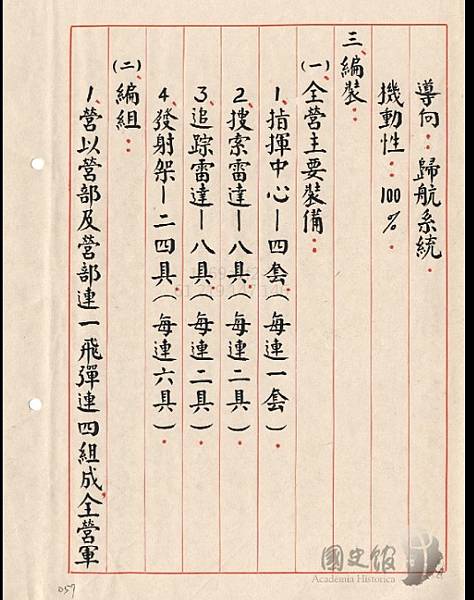 導向：歸航系統。
機動性：100%。
三、編裝：
(一)全營主要裝備：
1.指揮中心—四套(每連一套)。
2.搜索雷達—八具(每連二具)。
3.追踪雷達—八具(每連二具)。
4.發射架—二四具(每連六具)。
(二)編組：
1.營以營部及營部連一飛彈連四組成,全營軍
057
國史館
Academia Historica